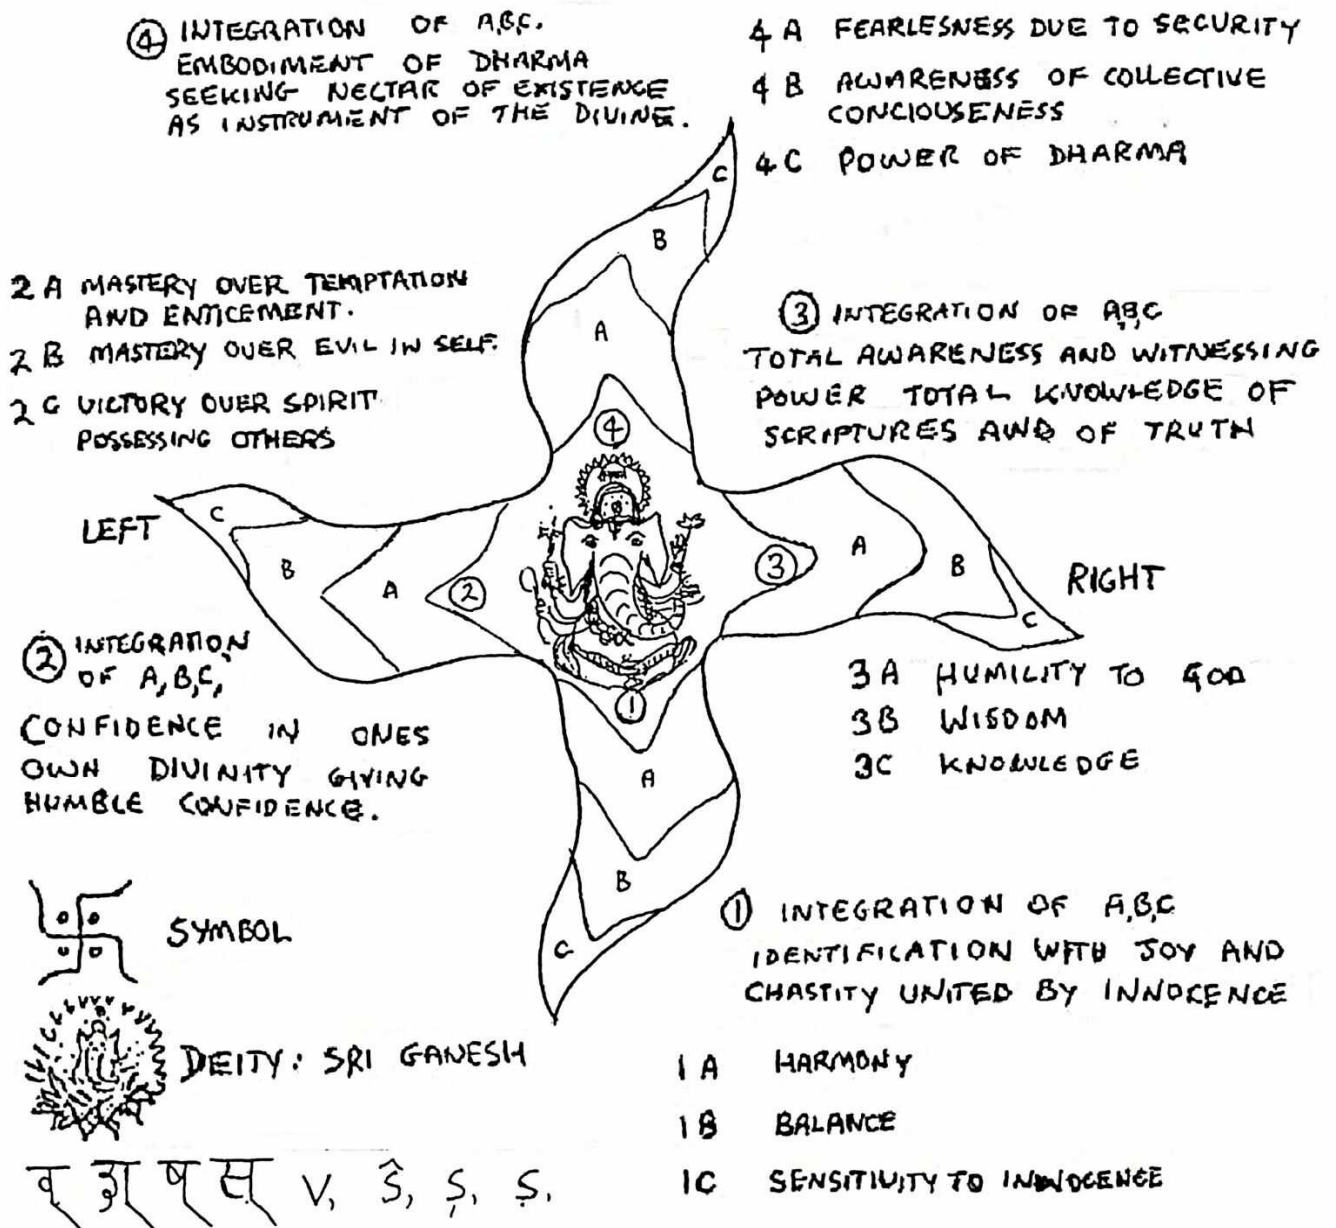 ④ INTEGRATION OF A,B,C.
EMBODIMENT OF DHARMA
SEEKING NECTAR OF EXISTENCE
AS INSTRUMENT OF THE DIVINE.
4 A FEARLESNESS DUE TO SECURITY
4 B AWARENESS OF COLLECTIVE
CONCIOUSENESS
4 C POWER OF DHARMA
2 A MASTERY OVER TEMPTATION
AND ENTICEMENT.
2 B MASTERY OVER EVIL IN SELF.
2 C VICTORY OVER SPIRIT
POSSESSING OTHERS
③ INTEGRATION OF A,B,C
TOTAL AWARENESS AND WITNESSING
POWER TOTAL KNOWLEDGE OF
SCRIPTURES AND OF TRUTH
C
B
A
④
LEFT
C
B
A
②
③
A
B
C
RIGHT
①
A
B
C
② INTEGRATION
OF A,B,C,
CONFIDENCE IN ONES
OWN DIVINITY GIVING
HUMBLE CONFIDENCE.
3 A HUMILITY TO GOD
3B WISDOM
3C KNOWLEDGE
SYMBOL
① INTEGRATION OF A,B,C
IDENTIFICATION WITH JOY AND
CHASTITY UNITED BY INNOCENCE
DEITY: SRI GANESH
1 A HARMONY
1 B BALANCE
1C SENSITIVITY TO INNOCENCE
व् श् ष् स् V, Ŝ, Ș, Ș.